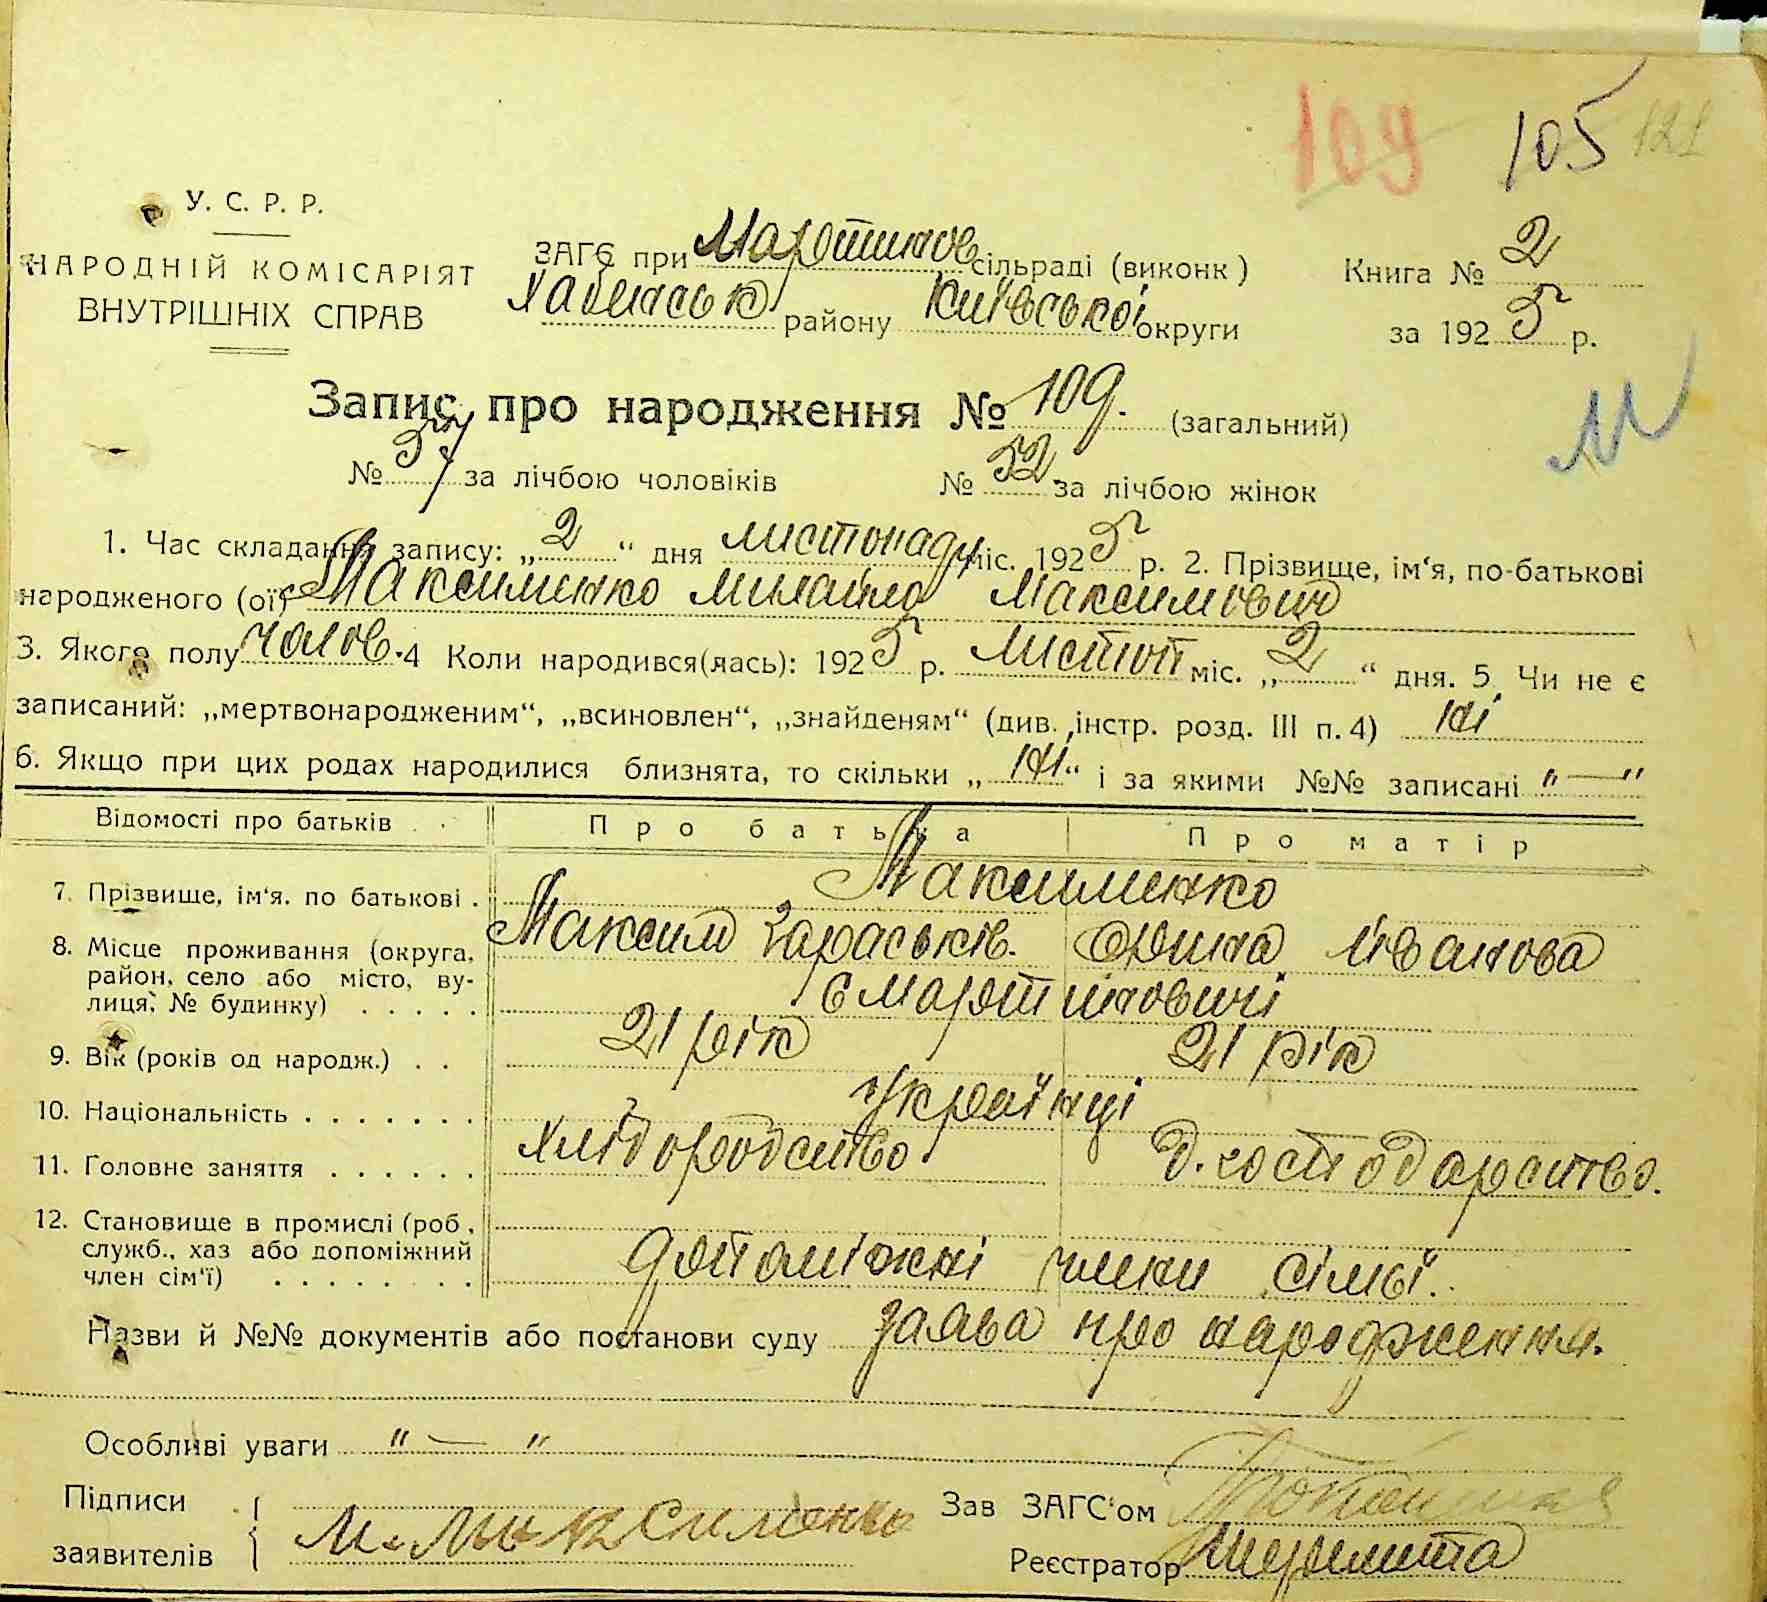 109 105 121
У. С. Р. Р.
НАРОДНІЙ КОМІСАРІЯТ
ВНУТРІШНІХ СПРАВ
ЗАГС при Мартинов сільраді (виконк)
Хабенськ району Київської округи
Книга № 2
за 1925 р.
Запис про народження № 109. (загальний)
М
№ 57 за лічбою чоловіків № 52 за лічбою жінок
1. Час складання запису: „2“ дня листопаду міс. 1925 р. 2. Прізвище, ім‘я, по-батькові
народженого (ої) Максименко Михайло Максимович
3. Якого полу чолов. 4 Коли народився(лась): 1925 р. листоп міс. „2“ дня. 5. Чи не є
записаний: „мертвонародженим“, „всиновлен“, „знайденям“ (див. інстр. розд. III п. 4) ні
6. Якщо при цих родах народилися близнята, то скільки „ні“ і за якими №№ записані "—"
Відомості про батьків Про батька Про матір
7. Прізвище, ім‘я. по батькові . Максименко
Максим Тараськів. Орина Іванова
8. Місце проживання (округа, район, село або місто, вулиця, № будинку) . . . . . с Мартиновичі
9. Вік (років од народж.) . . 21 рік 21 рік
10. Національність . . . . . . . Українці
11. Головне заняття . . . . . . хліборобство д. господарство.
12. Становище в промислі (роб., служб., хаз або допоміжний член сім‘ї) . . . . . . . . допоміжні члени сімьї.
Назви й №№ документів або постанови суду заява про народження.
Особливі уваги "—"
Підписи
заявителів М. Максименко
Зав ЗАГС‘ом
Реєстратор